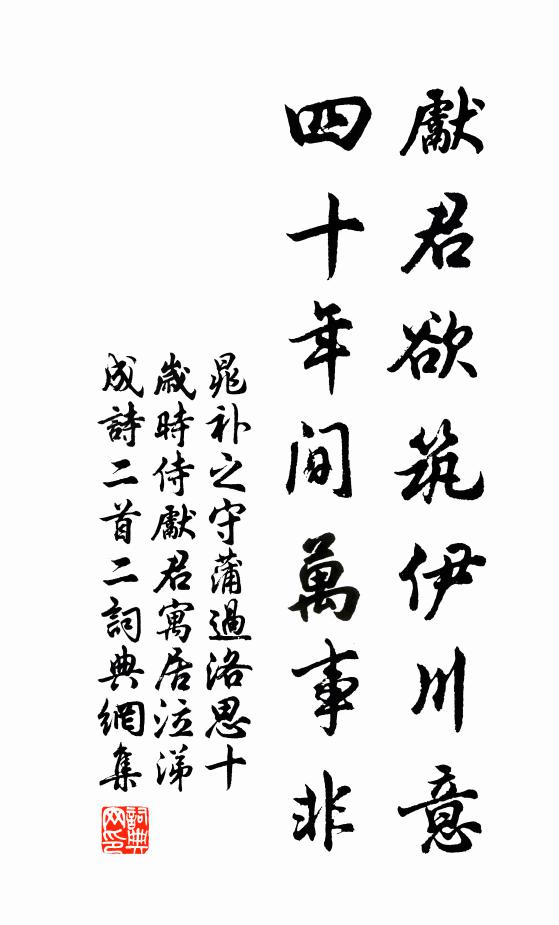 獻君欲筑伊川意
四十年间萬事非
晁补之守蒲過洛思十
歲時侍獻君寓居泣涕
成詩二首二詞典網集
詞典网印